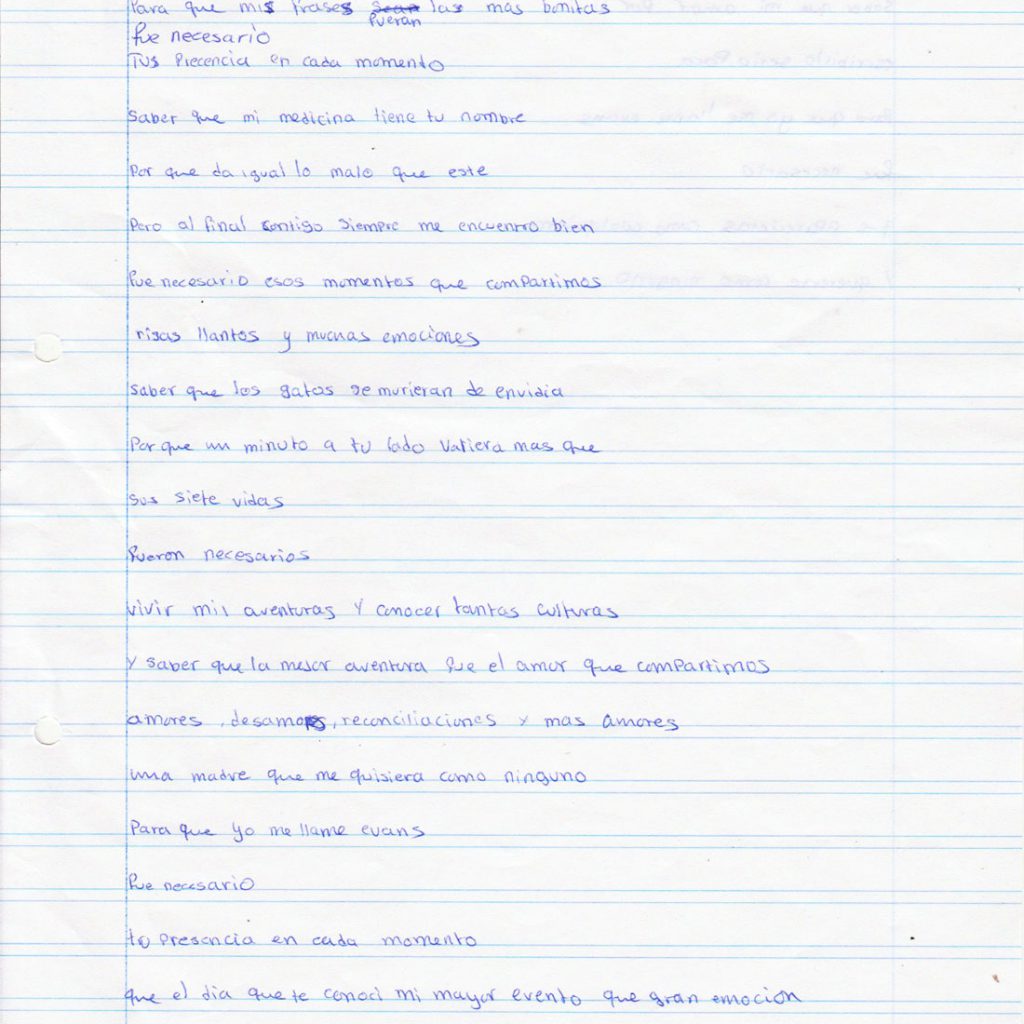 Para que mis frases fueran las mas bonitas
fue necesario
Tus Precencia en cada momento
Saber que mi medicina tiene tu nombre
Por que da igual lo malo que este
Pero al final contigo siempre me encuentro bien
fue necesario esos momentos que compartimos
risas llantos y muchas emociones
saber que los gatos se murieran de envidia
Porque un minuto a tu lado valiera mas que
sus siete vidas
fueron necesarios
vivir mis aventuras y conocer tantas culturas
y saber que la mejor aventura fue el amor que compartimos
amores, desamores, reconciliaciones y mas amores
una madre que me quisiera como ninguno
Para que yo me llame evans
fue necesario
tu presencia en cada momento
que el dia que te conoci mi mayor evento que gran emocion